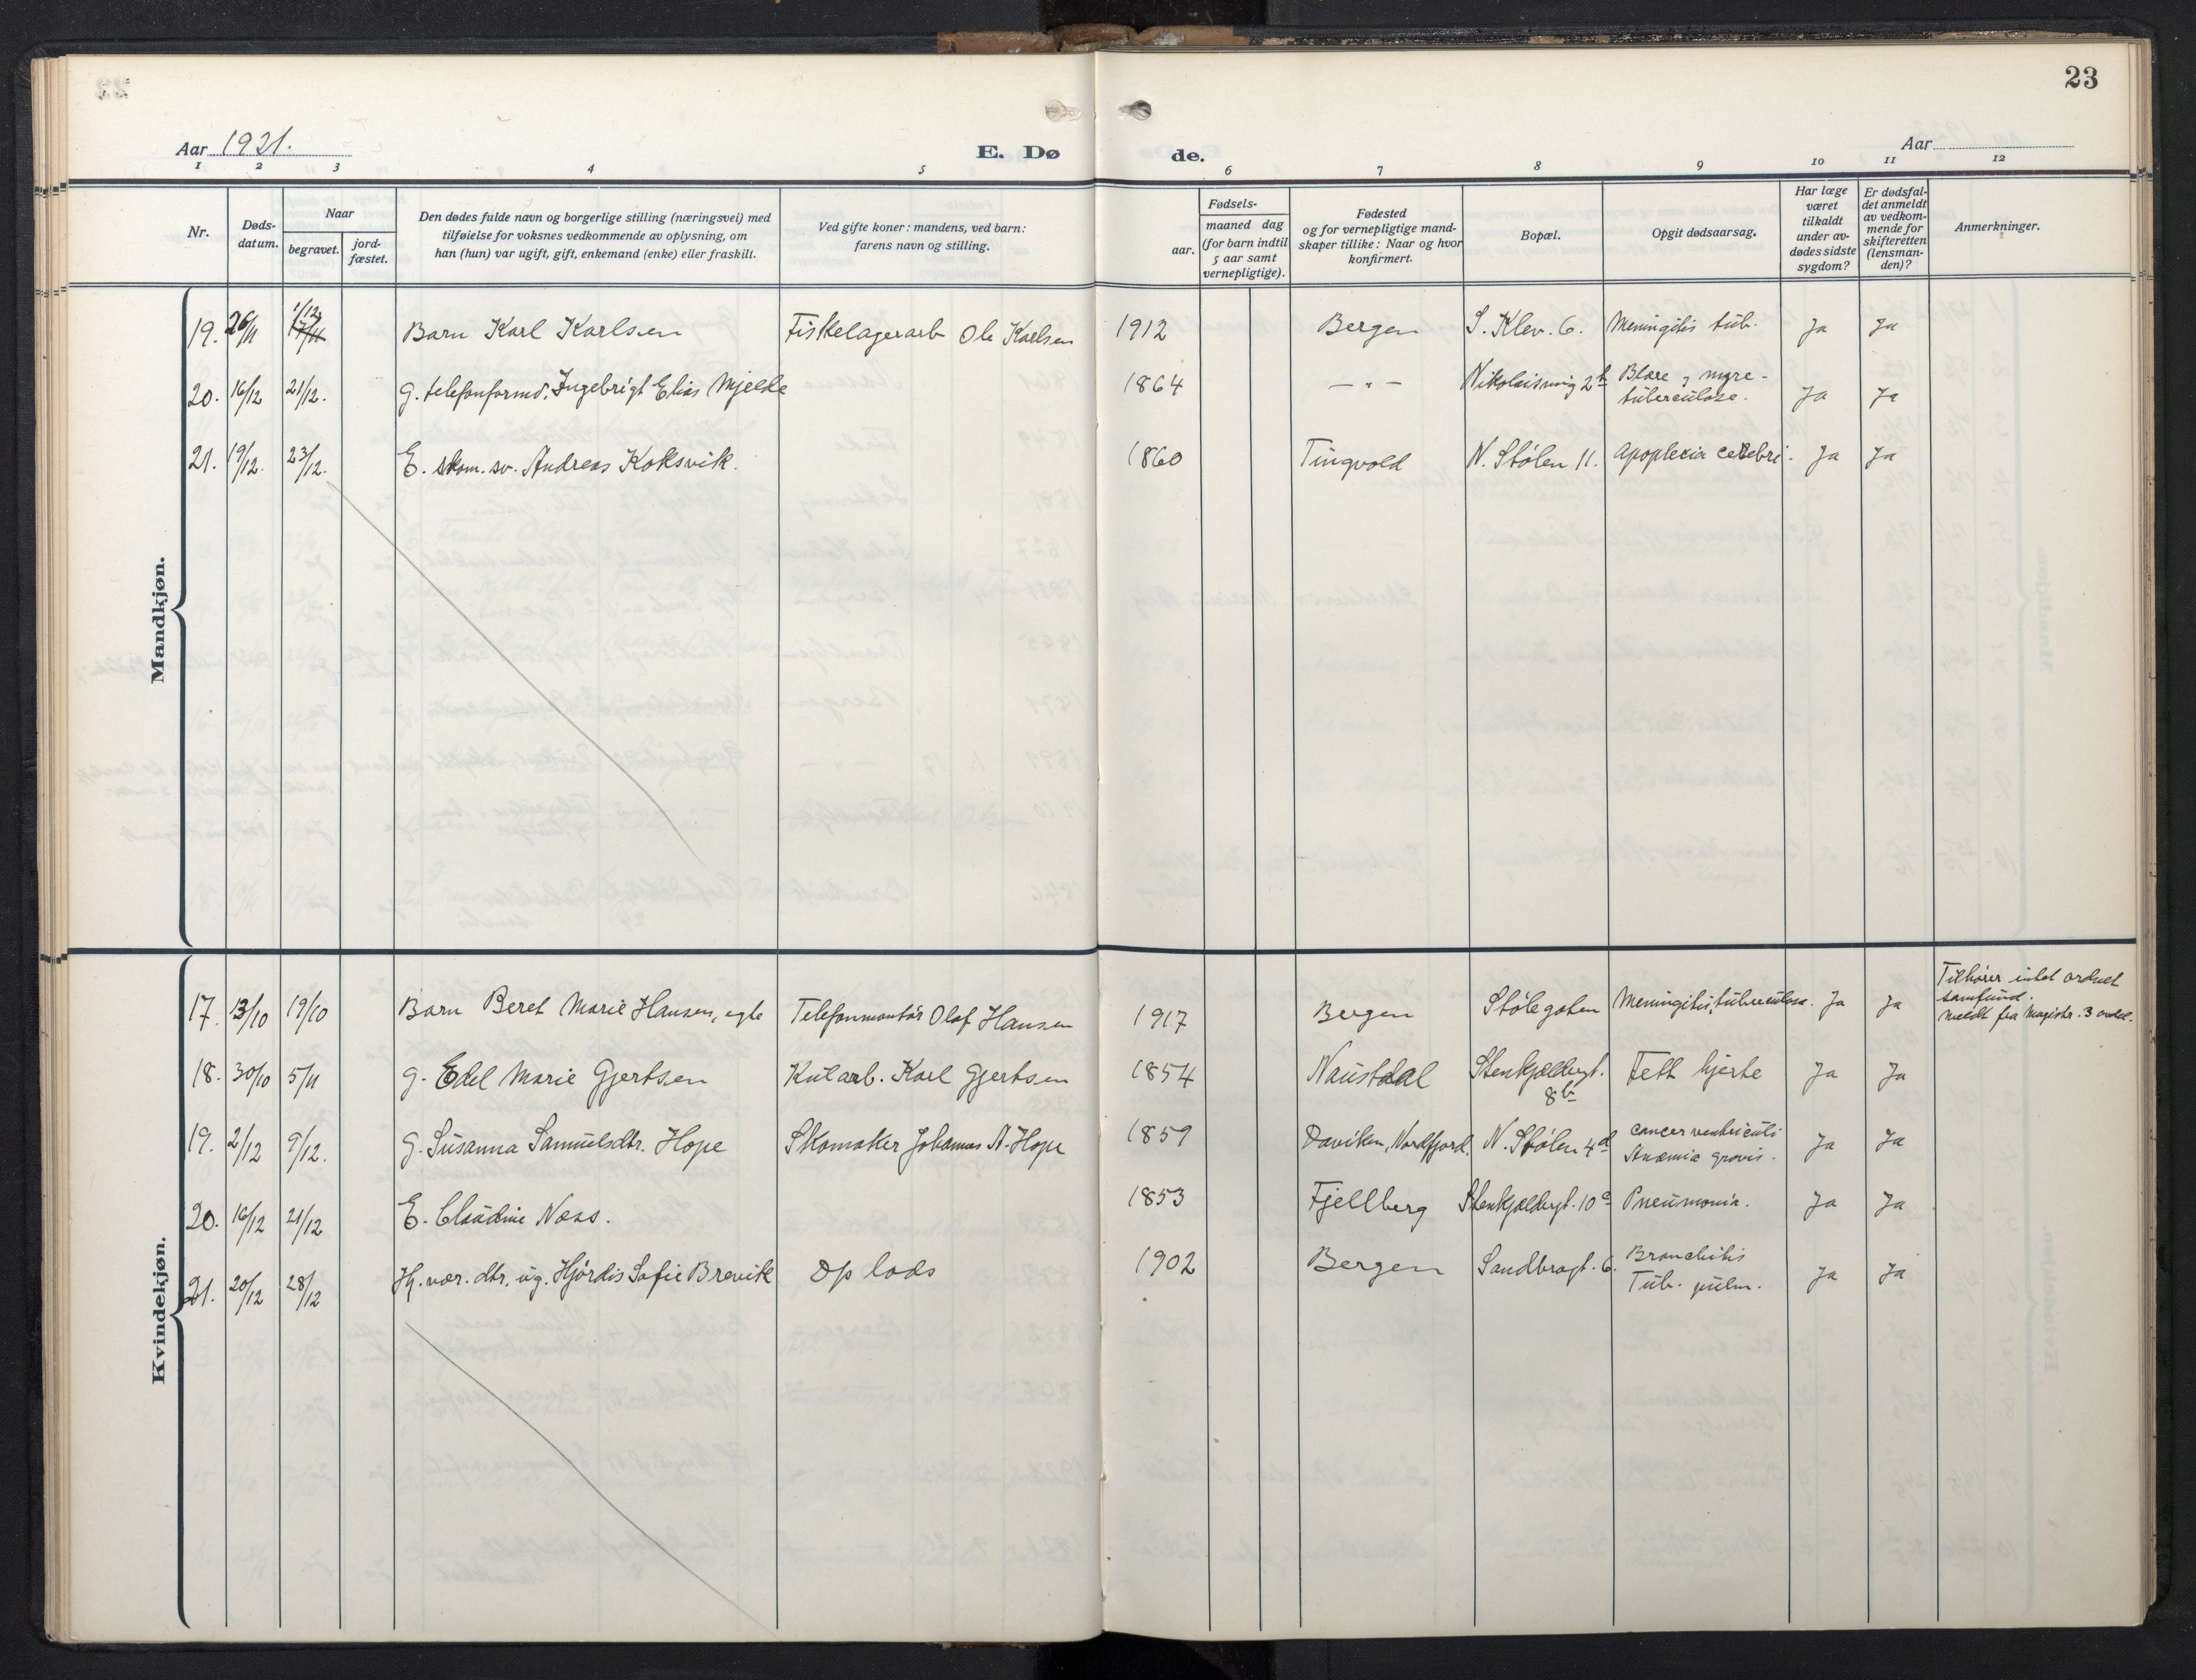 23
Aar 1921.
E. Dø de.
Aar
1 2 3 4 5 6 7 8 9 10 11 12
Nr.
Døds-
datum.
Naar
begravet.
jord-
fæstet.
Den dødes fulde navn og borgerlige stilling (næringsvei) med
tilføielse for voksnes vedkommende av oplysning, om
han (hun) var ugift, gift, enkemand (enke) eller fraskilt.
Ved gifte koner: mandens, ved barn:
farens navn og stilling.
Fødsels-
aar.
maaned dag
(for barn indtil
5 aar samt
vernepligtige).
Fødested
og for vernepligtige mand-
skaper tillike: Naar og hvor
konfirmert.
Bopæl.
Opgit dødsaarsag.
Har læge
været
tilkaldt
under av-
dødes sidste
sygdom?
Er dødsfal-
det anmeldt
av vedkom-
mende for
skifteretten
(lensman-
den)?
Anmerkninger.
Mandkjøn.
19. 26/11 1/12 Barn Karl Karlsen Fiskelagerarb Ole Karlsen 1912 Bergen S. Klev. 6. Meningitis tub. Ja Ja
20. 16/12 21/12. g. telefonformd. Ingebrigt Elias Mjelde 1864 — " — Nikolaismug 2b Blære & nyre-
tuberculose. Ja Ja
21. 19/12. 23/12. E. skom. sv. Andreas Koksvik. 1860 Tingvold N. Stølen 11. Apoplexia cerebri. Ja Ja
Kvindekjøn.
17. 13/10 19/10 Barn Beret Marie Hansen, egte Telefonmontør Olaf Hansen 1917 Bergen Stølegaten Meningitis tuberculosa. Ja Ja Tilhører intet ordnet
samfund.
Meldt fra Magistr. 3 avdel.
18. 30/10 5/11 g. Edel Marie Gjertsen Kularb. Karl Gjertsen 1854 Naustdal Stenkjeldergt.
8b Fett hjerte Ja Ja
19. 2/12 9/12. g. Susanna Samuelsdtr. Hope Skomaker Johannes A. Hope 1859 Daviken, Nordfjord. N. Stølen 4d cancer ventriculi
Anæmia gravis. Ja Ja
20. 16/12 21/12 E. Claudine Næss. 1853 Fjellberg Stenkjeldergt. 10a Pneumonia. Ja Ja
21. 20/12 28/12 Hj. vær. dtr. ug. Hjørdis Sofie Brevik Dp lods 1902 Bergen Sandbrogt. 6. Bronchitis
Tub. pulm. Ja Ja